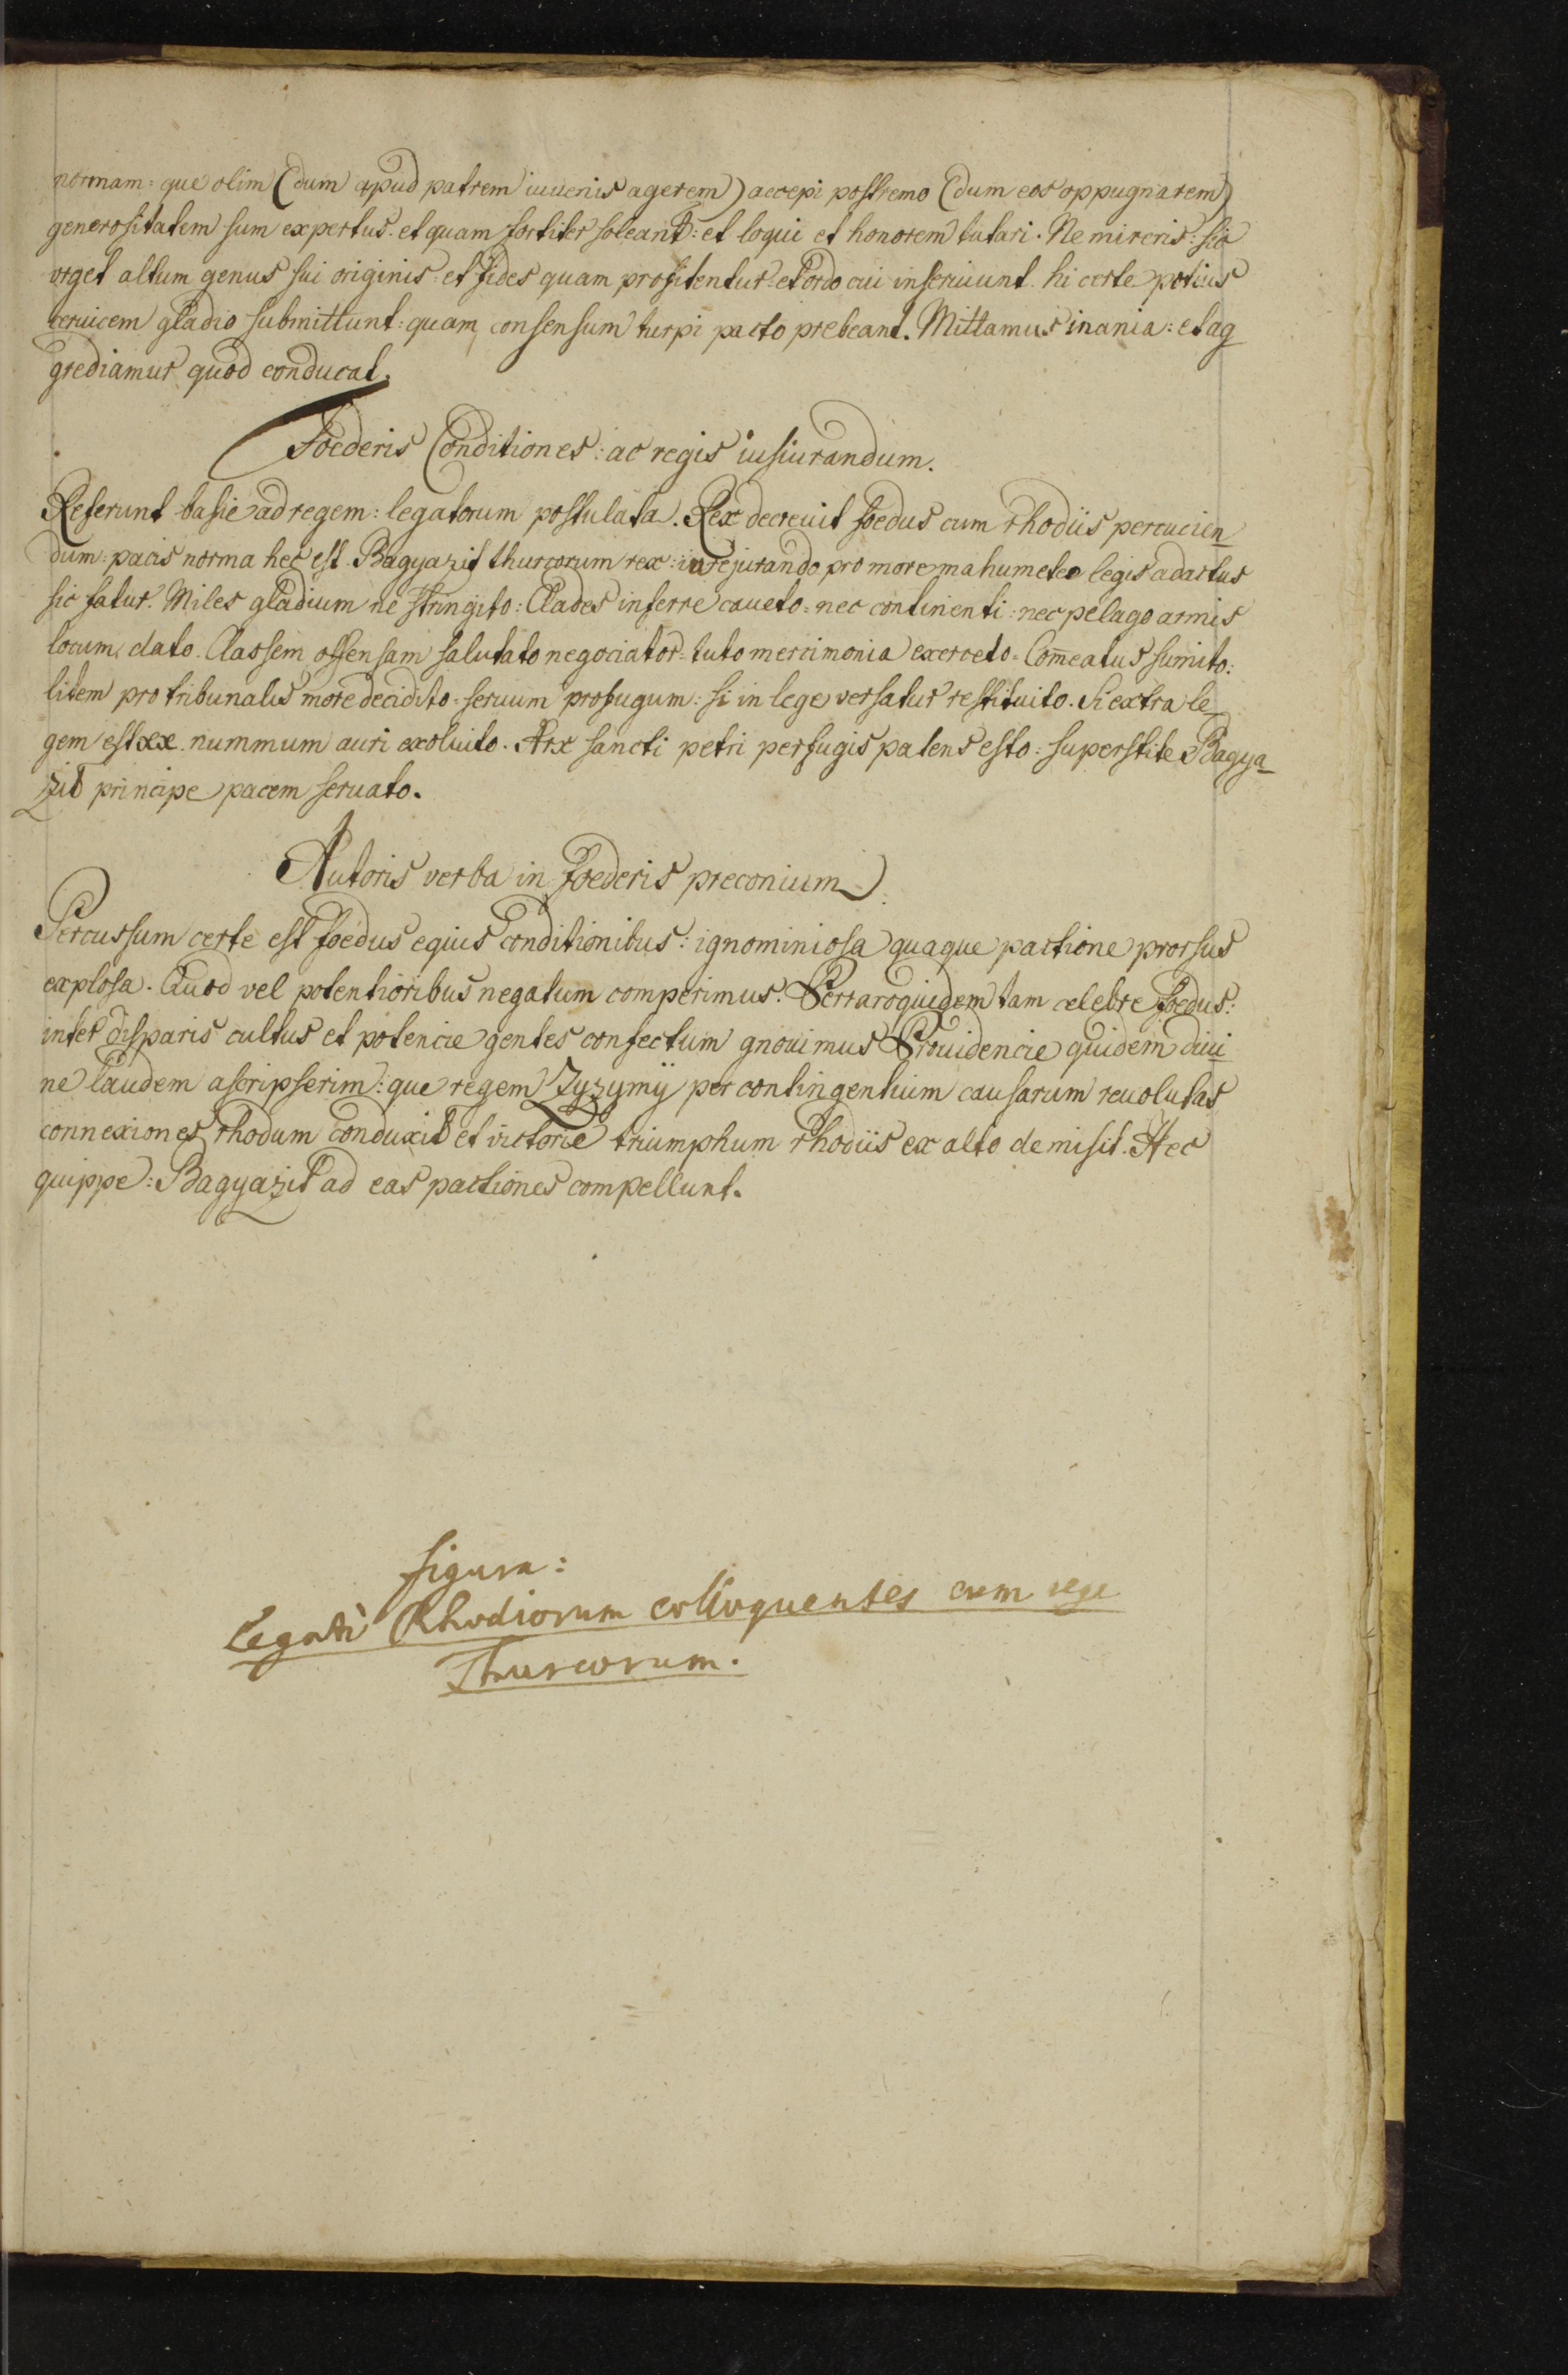 normam: que olim (dum apud patrem iuuenis agerem) accepi postremo (dum eos oppugnarem)
generositatem sum expertus. et quam fortiter soleant: et loqui et honorem tutari. Ne mireris: sic
vrget altum genus sui originis: et fides quam profitentur: et ordo cui inseruiunt. hi certe potius
ceruicem gladio submittunt: quam consensum turpi pacto prebeant. Mittamus inania: et ag
grediamur quod conducat.
Foederis Conditiones: ac regis iusiurandum.
Referunt basie ad regem: legatorum postulata. Rex decreuit foedus cum rhodiis percucien
dum: pacis norma hec est. Bagyazit thurcorum rex: iurejurando pro more mahumetee legis adactus
sic fatur. Miles gladium ne stringito: Clades inferre caueto: nec continenti: nec pelago armis
locum dato. Classem offensam salutato negociator: tuto mercimonia exerceto: Com̄eatus sumito:
litem pro tribunalis more decidito: seruum profugum: si in lege versatur restituito. Si extra le
gem est xx. nummum auri exoluito. Arx sancti petri perfugis patens esto: superstite Bagya
zit principe pacem seruato.
Autoris verba in foederis preconium.
Percussum certe est foedus eqius conditionibus: ignominiosa quaque pactione prorsus
explosa. Quod vel potentioribus negatum comperimus. Perraro quidem tam celebre foedus:
inter disparis cultus et potencie gentes confectum gnouimus Prouidencie quidem diui
ne laudem ascripserim: que regem Zyzymij per contingentium causarum reuolutas
connexiones rhodum conduxit et victorie triumphum rhodiis ex alto demisit. Hec
quippe: Bagyazit ad eas pactiones compellunt.
figura:
Legati Rhodiorum colloquentes cum rege
Thurcorum.